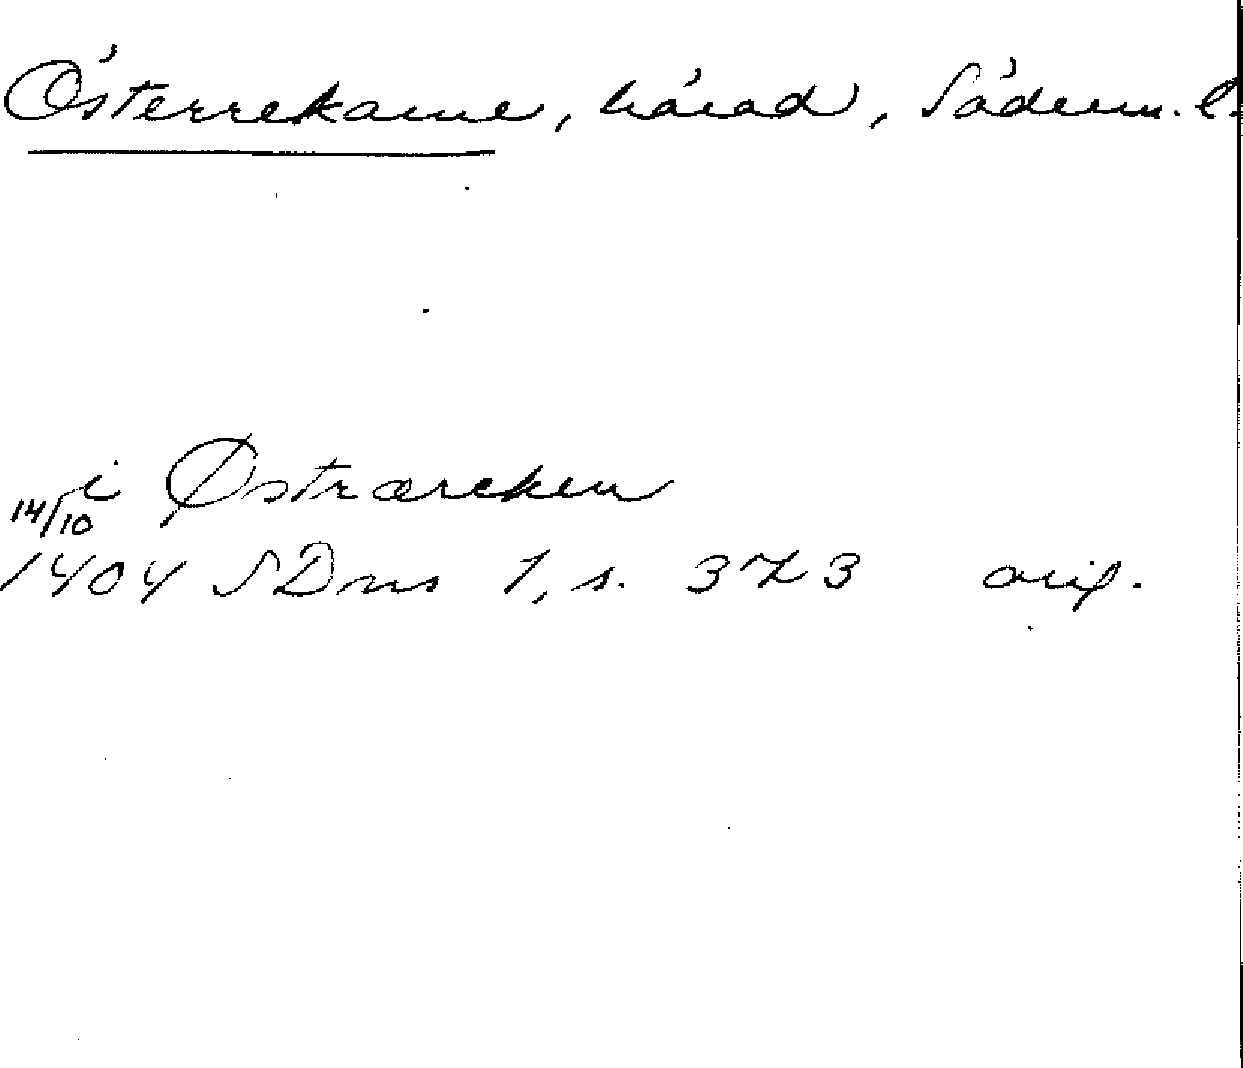 Österrekarne, härad, Söderm. l.
i Østrærcken
14/10
1404 SDns 1, s. 373 orig.